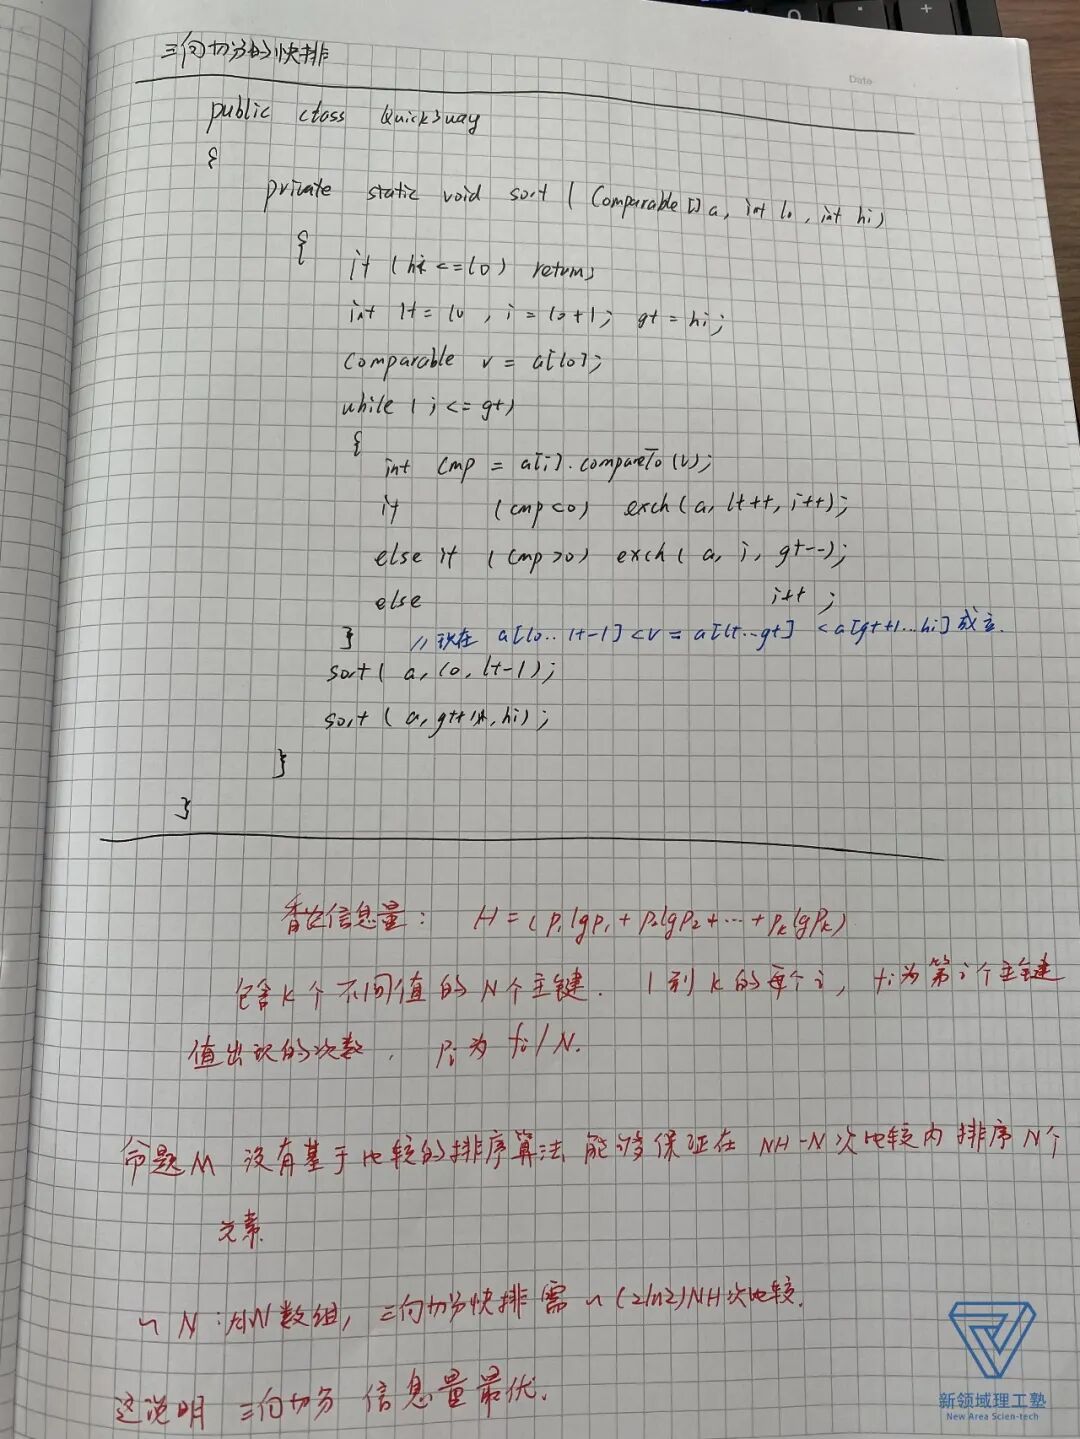 Date
三向切分的快排
public class Quick3way
{
private static void sort ( Comparable[] a, int lo, int hi)
{
if (hi <= lo) return;
int lt = lo , i = lo+1; gt = hi;
Comparable v = a[lo];
while ( i <= gt)
{
int cmp = a[i].compareTo(v);
if (cmp<0) exch(a, lt++, i++);
else if (cmp>0) exch( a, i, gt--);
else i++ ;
} // 现在 a[lo..lt-1] < v = a[lt..gt] < a[gt+1...hi] 成立.
sort( a, lo, lt-1);
sort ( a, gt+1, hi);
}
}
香农信息量: H = ( p₁lgp₁ + p₂lgp₂ + ... + pₖlgpₖ)
包含 k 个不同值的 N 个主键. 1 到 k 的每个 i, fi 为第 i 个主键
值出现的次数, pi 为 fi/N.
命题 M 没有基于比较的排序算法能够保证在 NH-N 次比较内排序 N 个
元素.
~ N : 大小N数组, 三向切分快排需 ~(2ln2)NH次比较.
这说明 三向切分 信息量最优.
新领域理工塾
New Area Scien-tech